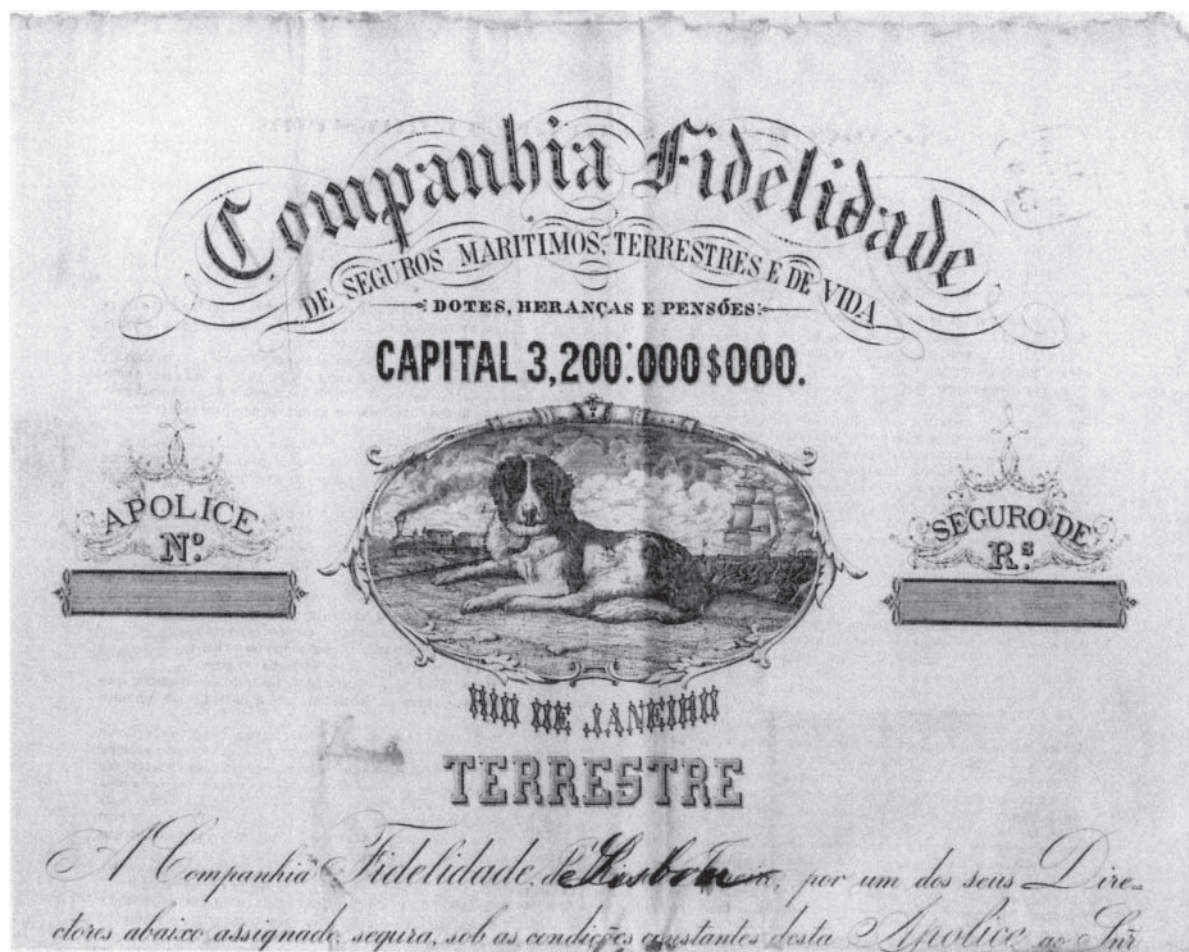 Companhia Fidelidade
DE SEGUROS MARITIMOS, TERRESTRES E DE VIDA
DOTES, HERANÇAS E PENSÓES
CAPITAL 3,200:000$000.
APOLICE
Nº
SEGURO DE
R.s
RIO DE JANEIRO
TERRESTRE
A Companhia Fidelidade, de Lisboa, por um dos seus Dire=
ctores abaixo assignado, segura, sob as condições constantes desta Apolice, ao Snr̃